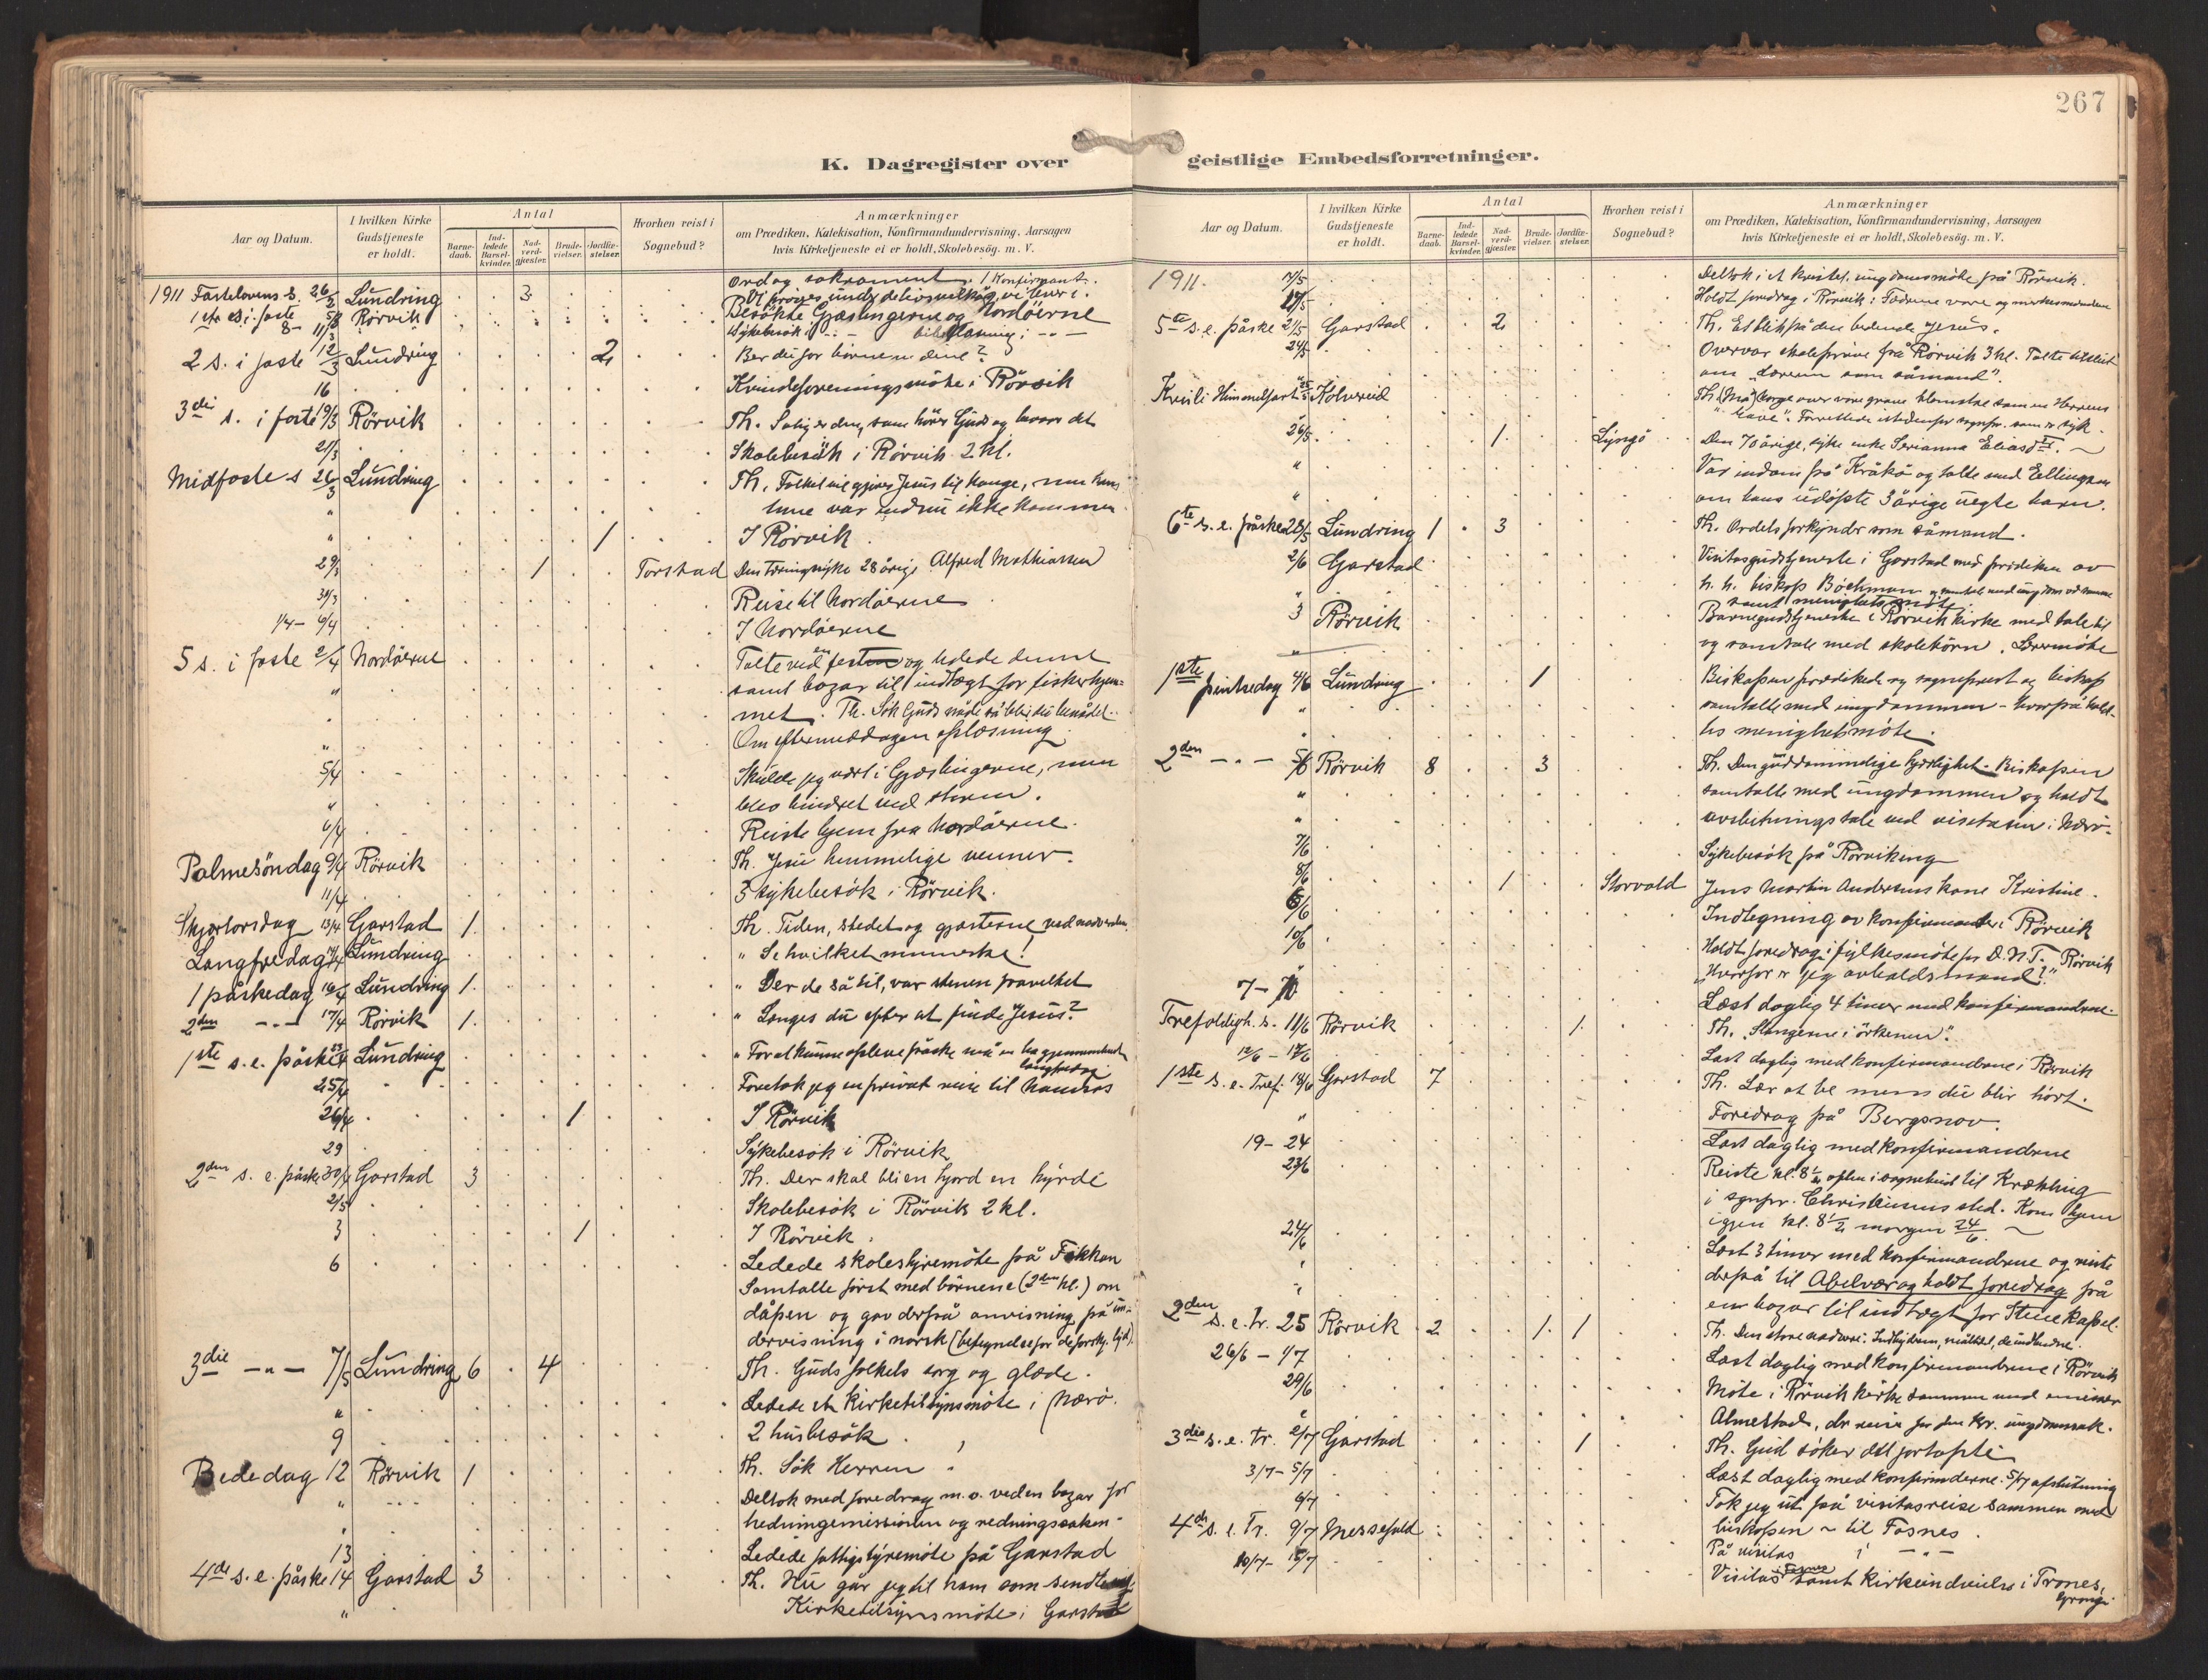 267
K. Dagregister over
Aar og Datum.
I hvilken Kirke Gudstjeneste er holdt.
Antal
Barnedaab.
Indledede Barselkvinder.
Nadverdgjæster.
Brudevielser.
Jordfæstelser.
Hvorhen reist i Sognebud?
Anmærkninger
om Prædiken, Katekisation, Konfirmandundervisning, Aarsagen
hvis Kirketjeneste ei er holdt, Skolebesög. m. V.
1911 Fastelavens s. 26/2 Lundring 3 Ord og sakrament. 1 Konfirmant.
1ste s. i faste 5/3 Rörvik
8 - 11/3 Besökte Gjæslingerne og Nordöerne
2 s. i faste 12/3 Lundring 2 Ber du for börnene dine?
16 Kvindeforeningsmöte i Rörvik
3die s. i faste 19/3 Rörvik Th. Salig er den, som hörer Guds og bevarer det
21/3 Skolebesök i Rörvik 2 kl.
Midfaste s 26/3 Lundring Th. Folket vil gjöre Jesus til konge, men hans
time var endnu ikke kommen
" 1 I Rörvik
29/3 1 Torstad Den tæringssyke 28 årige Alfred Mathiassen
31/3 Reise til Nordöerne
1/4 - 6/4 I Nordöerne
5 s. i faste 2/4 Nordöerne Talte ved en festen og ledede denne
samt bazar til indtægt for fiskerhjem-
met. Th. Sök Guds nåde så blir du benådet.
" Om eftermiddagen oplæsning
5/4 Skulde jeg vært i Gjæslingerne, men
" blev hindret ved storm.
6/4 Reiste hjem fra Nordöerne.
Palmesöndag 9/4 Rörvik Th. Jesu hemmelige venner.
11/4 3 sykebesök i Rörvik.
Skjærtorsdag 13/4 Garstad 1. Th. Tiden, stedet og gjæsterne ved nadverden.
Langfredag 14/4 Lundring " Se hvilket menneske!
1 påskedag 16/4 Lundring 1. " Der de så til, var stenen fravæltet
2den - " - 17/4 Rörvik 1. " Længes du efter at finde Jesus?
1ste s. e. påske 23/4 Lundring " For at kunne opleve påske må en ha gjennemlevet
langfredag
25/4 Foretok jeg en privat reise til Namsos
26/4 1 I Rörvik
29 Sykebesök i Rörvik
2den s. e. påske 30/4 Garstad 3 Th. Der skal bli en hjord en hyrde
2/5 Skolebesök i Rörvik 2 kl.
3 1 I Rörvik.
6 Ledede skolestyremöte på
Samtalte först med börnene (3dem kl.) om
dåpen og gav derpå anvisning på un-
dervisning i norsk
3die - " - 7/5 Lundring 6 4 Th. Guds folkets sorg og glæde.
" Ledede et Kirketilsynsmöte i Nærö.
9 2 husbesök.
Bededag 12 Rörvik 1 Th. Sök Herren.
" Deltok med foredrag m.v. ved en bazar for
hedningemissionen og redningssaken.
13 Ledede fattigstyremöte på Garstad
4de s. e. påske 14 Garstad 3 Th. Nu går jeg til ham som sendte mig
" Kirketilsynsmöte i Garstad
geistlige Embedsforretninger.
Aar og Datum.
I hvilken Kirke Gudstjeneste er holdt.
Antal
Barnedaab.
Indledede Barselkvinder.
Nadverdgjæster.
Brudevielser.
Jordfæstelser.
Hvorhen reist i Sognebud?
Anmærkninger
om Prædiken, Katekisation, Konfirmandundervisning, Aarsagen
hvis Kirketjeneste ei er holdt, Skolebesög. m. V.
1911. Deltok i et kristel. ungdomsmöte på Rörvik.
17/5 Holdt foredrag i Rörvik: Fædrene vore og
5te s. e. påske 21/5 Garstad 2 Th. Et blik på den bedende Jesus.
24/5 Overvar skolepröve på Rörvik 3 kl. Talte tilslut
om "Læreren som såmand".
Kristi Himmelfart 25/5 Kolvereid
26/5 1 Lyngö Den 70 årige, syke enke Serianna Eliasdtr.
" Var indom på Kråkö og talte med Ellingsen
" om hans udöpte 3 årige uegte barn.
6te s. e. påske 28/5 Lundring 1 3 Th. Ordets forkynder som såmand.
2/6 Garstad Visitasgudstjeneste i Garstad med prædiken av
h. h. biskop Böckman
samt menighetsmöte
3 Rörvik Barnegudstjeneste i Rörvik kirke med tale til
og samtale med skolebörn. Lærermöte
1ste pintsedag 4/6 Lundring 1 Biskopen prædikede og sogneprest og biskop
" samtalte med ungdommen - hvorpå hold-
tes menighetsmöte.
2den - " - 5/6 Rörvik 8 3 Th. Den guddommelige kjærlighet. Biskopen
" samtalte med ungdommen og holdt
" avslutningstale ved visitasen i Nærö.
7/6 Sykebesök på Rörvik
8/6 1 Storvald Jens Martin Andersens kone Kristine.
6/6 Indtegning av konfirmander i Rörvik
10/6 Holdt foredrag i fylkesmöte for D.N.T. Rörvik
"Hvorfor er jeg avholdsmand?"
7 - 10 Læst daglig 4 timer med konfirmanderne.
Trefoldigh. s. 11/6 Rörvik 1. Th. "Slangerne i örkenen".
12/6 - 17/6 Læst daglig med konfirmanderne i Rörvik
1ste s. e. Tref. 18/6 Garstad 7 Th. Lær at be mens du blir hört.
" Foredrag på Bergsnov.
19 - 24 Læst daglig med konfirmanderne
23/6 Reiste kl. 8½ aften i sognebud til
i sgnpr. Christensens sted. Kom hjem
igjen kl. 8½ morgen 24/6
24/6 Læst 3 timer med konfirmanderne og reiste
derpå til Abelvær og holdt foredrag på
" en bazar til indtægt for Stene kapel.
2den s. e. tr. 25 Rörvik 2 1 1 Th. Den store nadvere:
26/6 - 1/7 Læst daglig med konfirmanderne i Rörvik
29/6 Möte i Rörvik kirke sammen med emissær
Almestad, der reise for den kr. ungdomssak.
3die s. e. tr. 2/7 Garstad 1 Th. Gud söker det fortapte
3/7 - 5/7 Læst daglig med konfirmderne. 5/7 afslutning
6/7 Tok jeg ut på visitasreise sammen med
biskopen - til Fosnes.
4de s. e. Tr. 9/7 Messefald På visitas i - " -
10/7 - 15/7 Visitas Fosnes samt kirkeindvielse i Trones,
Grong